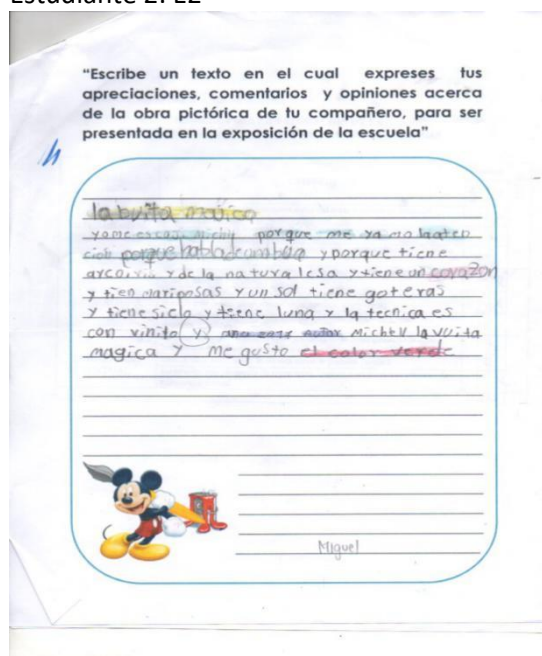 Estudiante 2. E2
“Escribe un texto en el cual expreses tus
apreciaciones, comentarios y opiniones acerca
de la obra pictórica de tu compañero, para ser
presentada en la exposición de la escuela”
la magica
porque me ya mo laaten
cion porque habla de y porque tiene
arcoiris y de la natura lesa y tiene un corazon
y tien mariposas y un sol tiene goteras
y tiene sielo y tiene luna y la tecnica es
con vinilo y autor Michell la vuita
magica y me gusto el color verde
Miguel